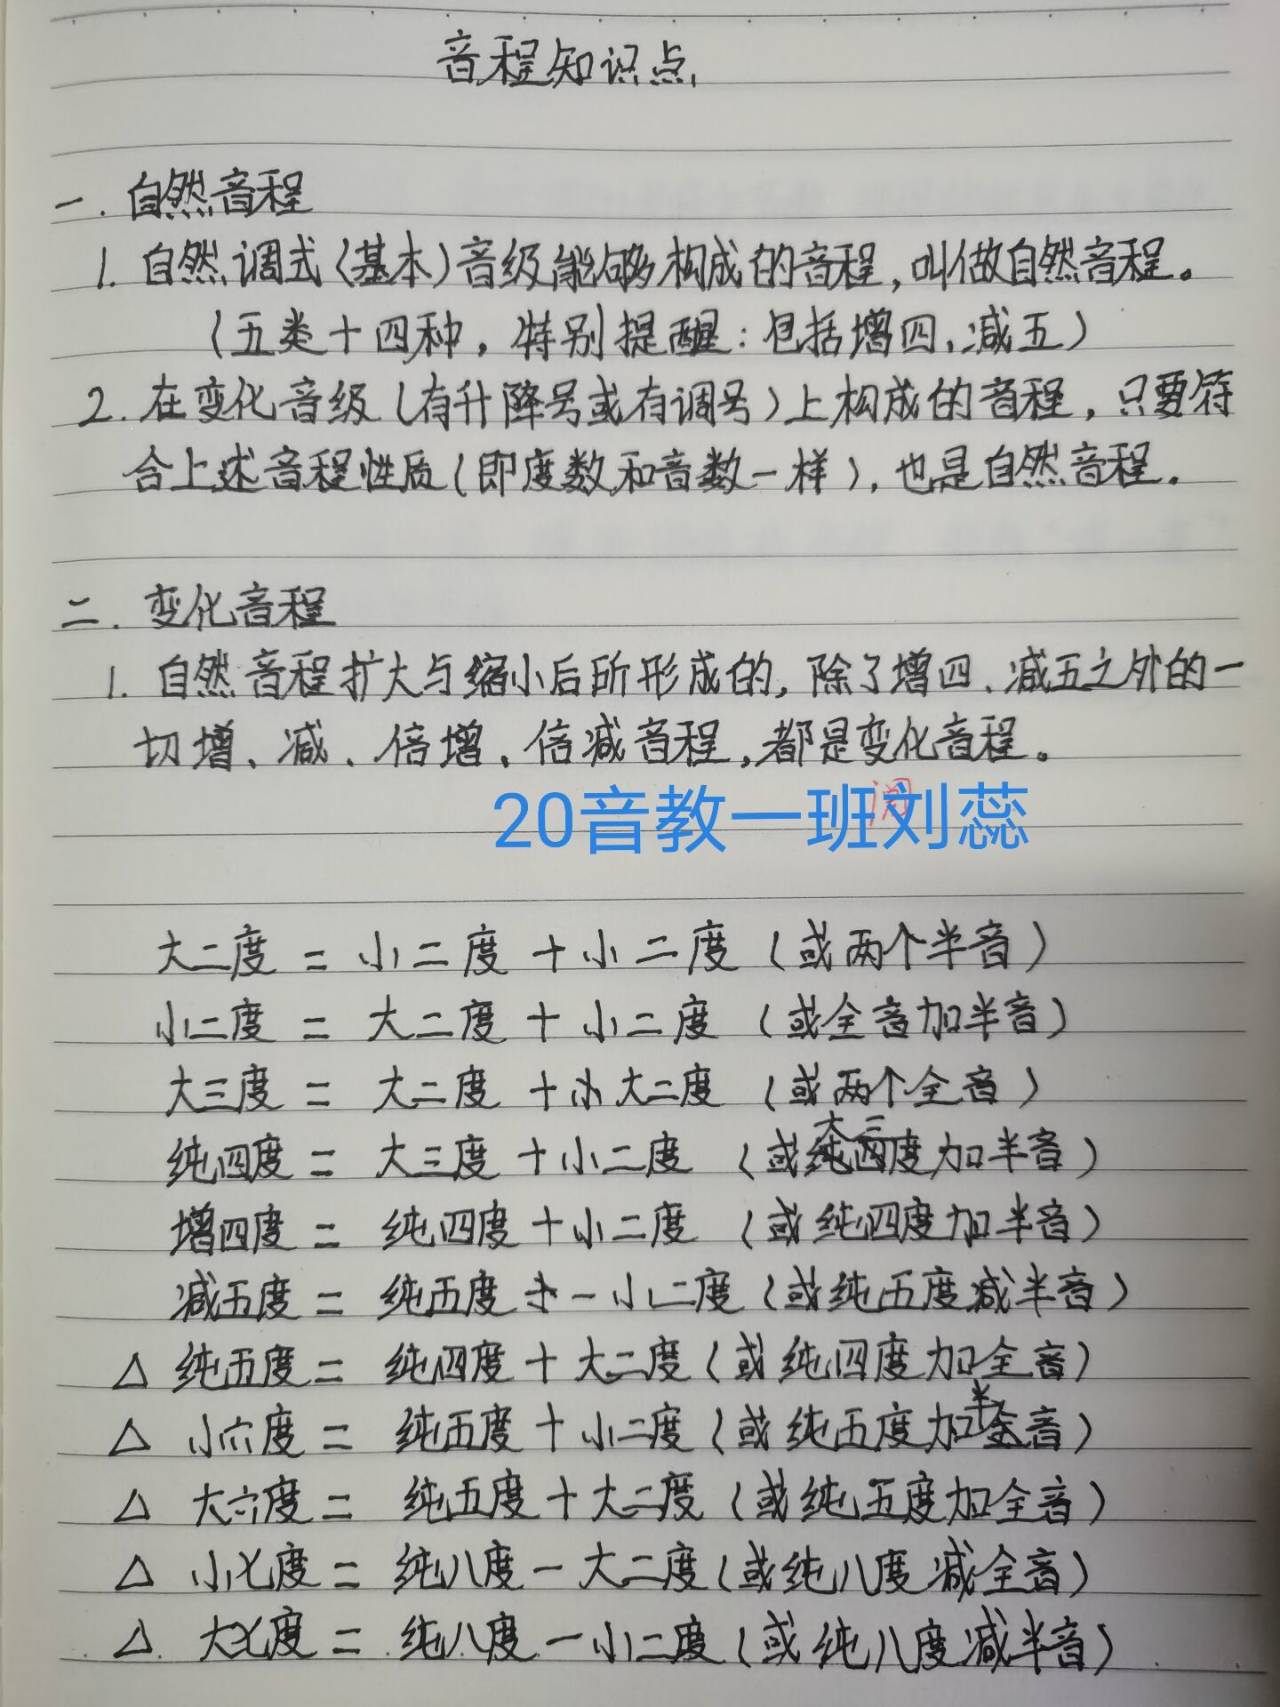 音程知识点
一. 自然音程
1. 自然调式(基本)音级能够构成的音程,叫做自然音程。
(五类十四种,特别提醒:包括增四、减五)
2. 在变化音级(有升降号或有调号)上构成的音程,只要符
合上述音程性质(即度数和音数一样),也是自然音程。
二. 变化音程
1. 自然音程扩大与缩小后所形成的,除了增四、减五之外的一
切增、减、倍增、倍减音程,都是变化音程。
阅
20音教一班刘蕊
大二度 = 小二度 + 小二度 (或两个半音)
小二度 = 大二度 + 小二度 (或全音加半音)
大三度 = 大二度 + 大二度 (或两个全音)
纯四度 = 大三度 + 小二度 (或大三度加半音)
增四度 = 纯四度 + 小二度 (或纯四度加半音)
减五度 = 纯五度 - 小二度 (或纯五度减半音)
△ 纯五度 = 纯四度 + 大二度 (或纯四度加全音)
△ 小六度 = 纯五度 + 小二度 (或纯五度加半音)
△ 大六度 = 纯五度 + 大二度 (或纯五度加全音)
△ 小七度 = 纯八度 - 大二度 (或纯八度减全音)
△ 大七度 = 纯八度 - 小二度 (或纯八度减半音)